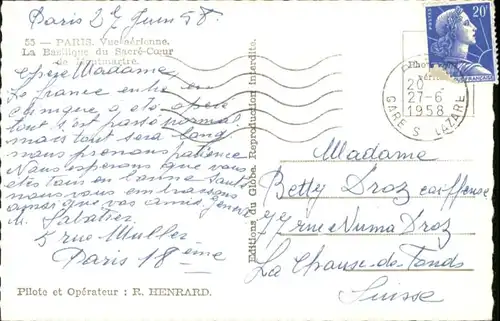 Paris 27 Juin 58.
55 - PARIS. Vue aérienne.
La Basilique du Sacré-Cœur
de Montmartre.
Chère Madame,
La France entre en
a été opéré
tout s'est passé normal
mais tout sera long
nous prenons patience
Nous esperons que vous
etes tous en bonne santé
nous vous embrassons
ainsi que vos amis, Genève
M. Sabatier
5 rue Muller
Paris 18ème
Pilote et Opérateur : R. HENRARD.
Editions du Globe. Reproduction interdite.
20F
POSTES
FRANÇAISE
20 -
27-6
1958
GARE S LAZARE
Madame
Betty Droz coiffeuse
77 rue Numa Droz
La Chaux-de-Fonds
Suisse